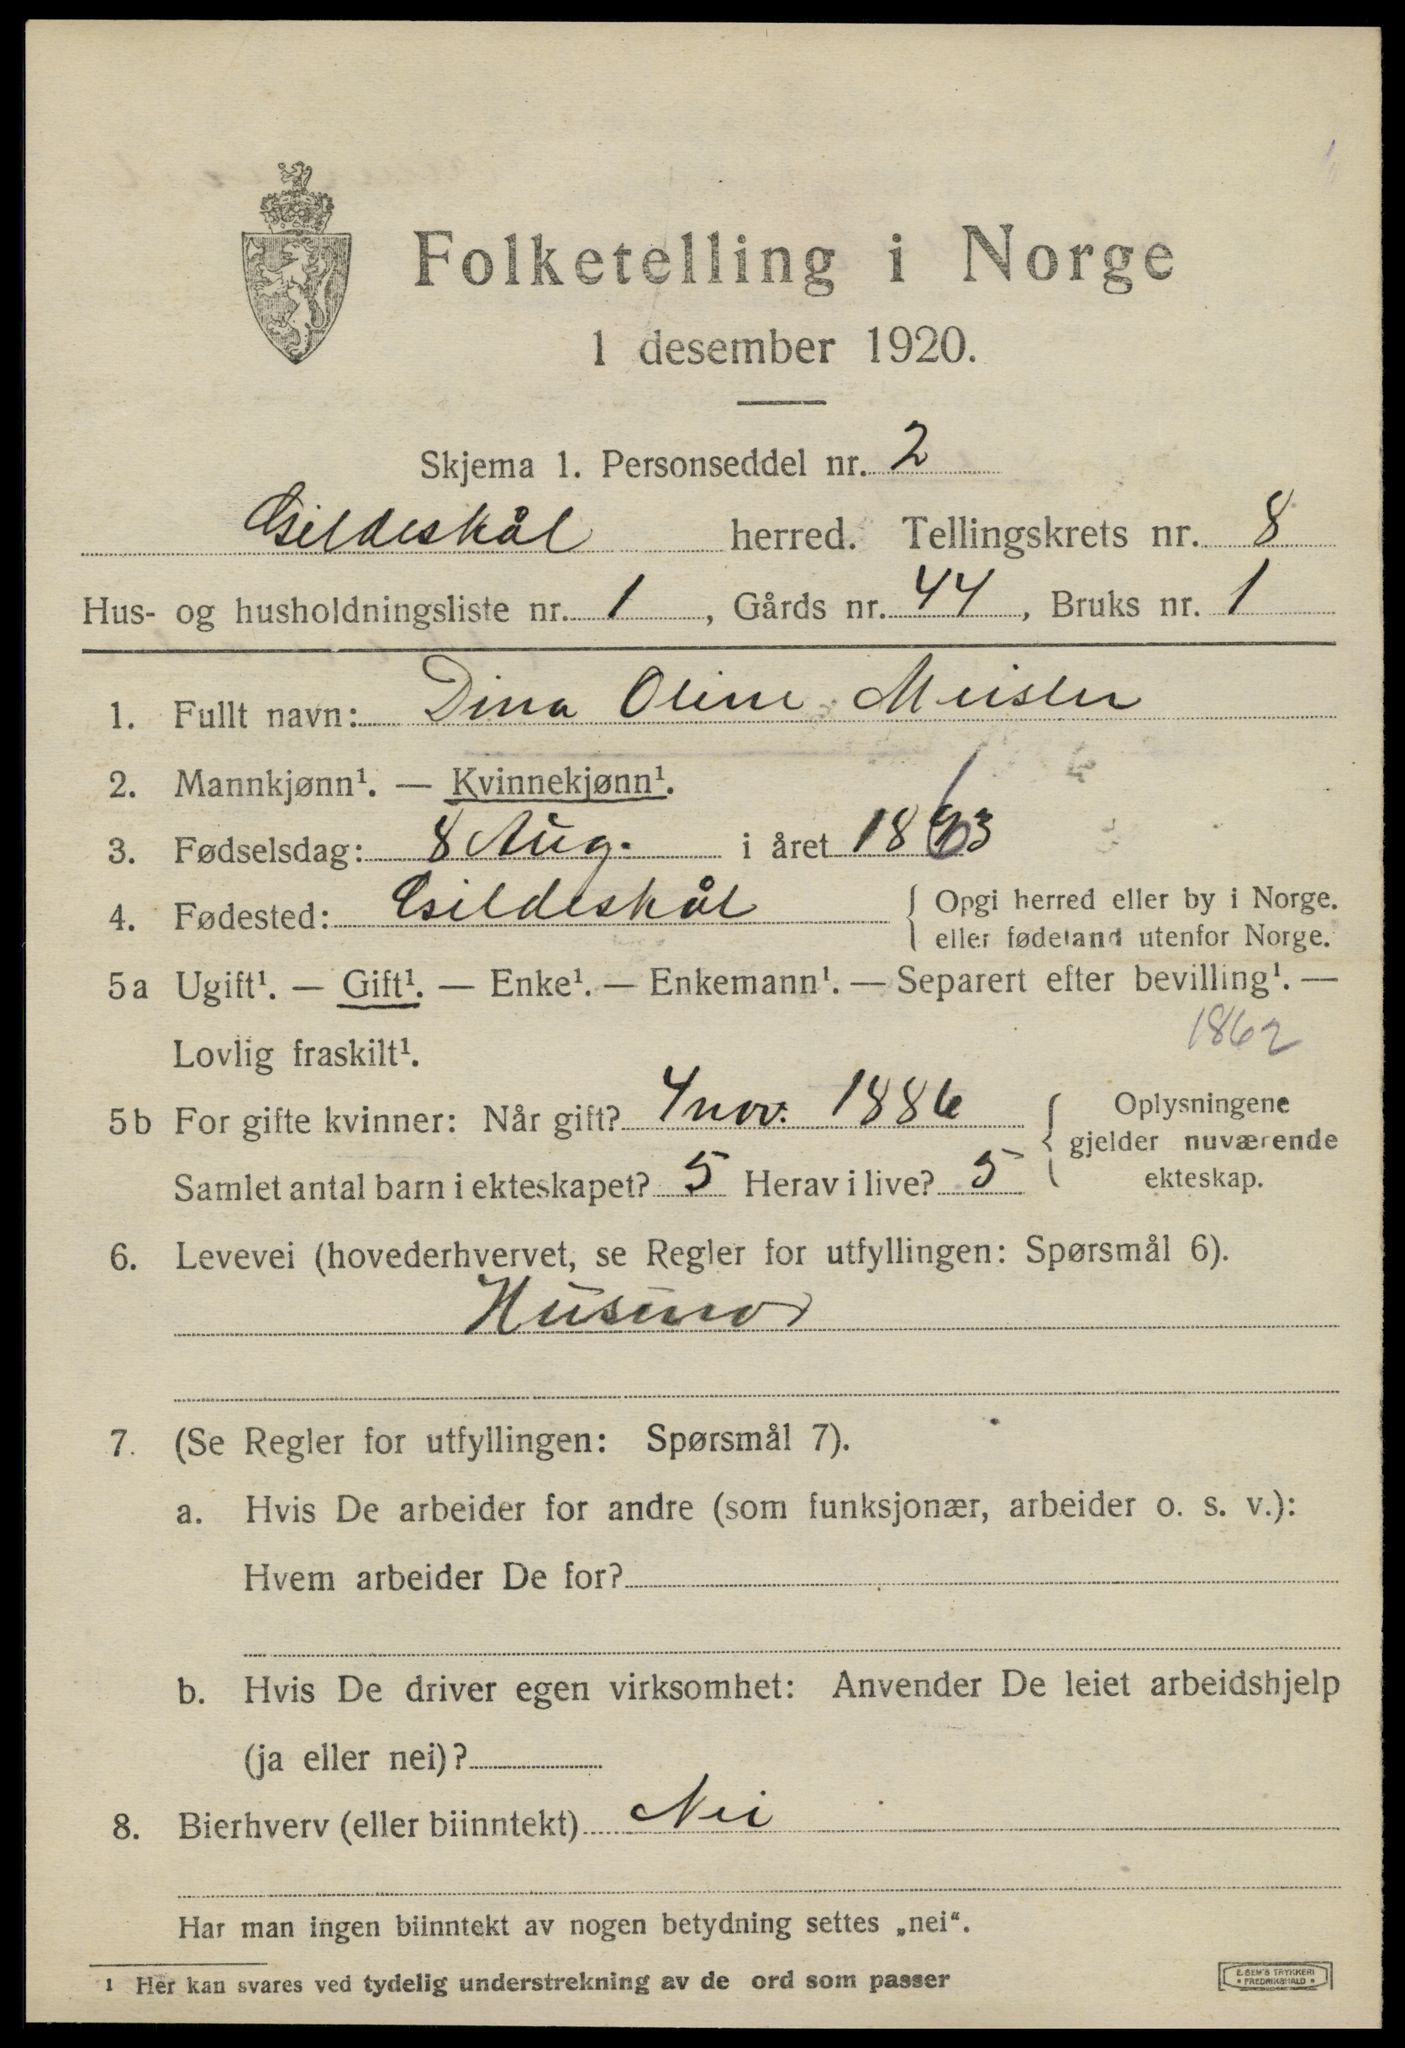 Folketelling i Norge
1 desember 1920.
Skjema 1. Personseddel nr. 2
Gildeskål herred. Tellingskrets nr. 8
Hus- og husholdningsliste nr. 1, Gårds nr. 44, Bruks nr. 1
1. Fullt navn: Dina Oline Meisler
2. Mannkjønn¹. — Kvinnekjønn¹.
3. Fødselsdag: 8 Aug. i året 1863
4. Fødested: Gildeskål { Opgi herred eller by i Norge.
eller fødeland utenfor Norge.
5a Ugift¹. — Gift¹. — Enke¹. — Enkemann¹. — Separert efter bevilling¹. —
Lovlig fraskilt¹. 1862
5b For gifte kvinner: Når gift? 4 nov. 1886 { Oplysningene
gjelder nuværende
Samlet antal barn i ekteskapet? 5 Herav i live? 5 ekteskap.
6. Levevei (hovederhvervet, se Regler for utfyllingen: Spørsmål 6).
Husmor
7. (Se Regler for utfyllingen: Spørsmål 7).
a. Hvis De arbeider for andre (som funksjonær, arbeider o. s. v.):
Hvem arbeider De for?
b. Hvis De driver egen virksomhet: Anvender De leiet arbeidshjelp
(ja eller nei)?
8. Bierhverv (eller biinntekt) Nei
Har man ingen biinntekt av nogen betydning settes „nei“.
1 Her kan svares ved tydelig understrekning av de ord som passer
E. SEM'S TRYKKERI
• FREDRIKSHALD •